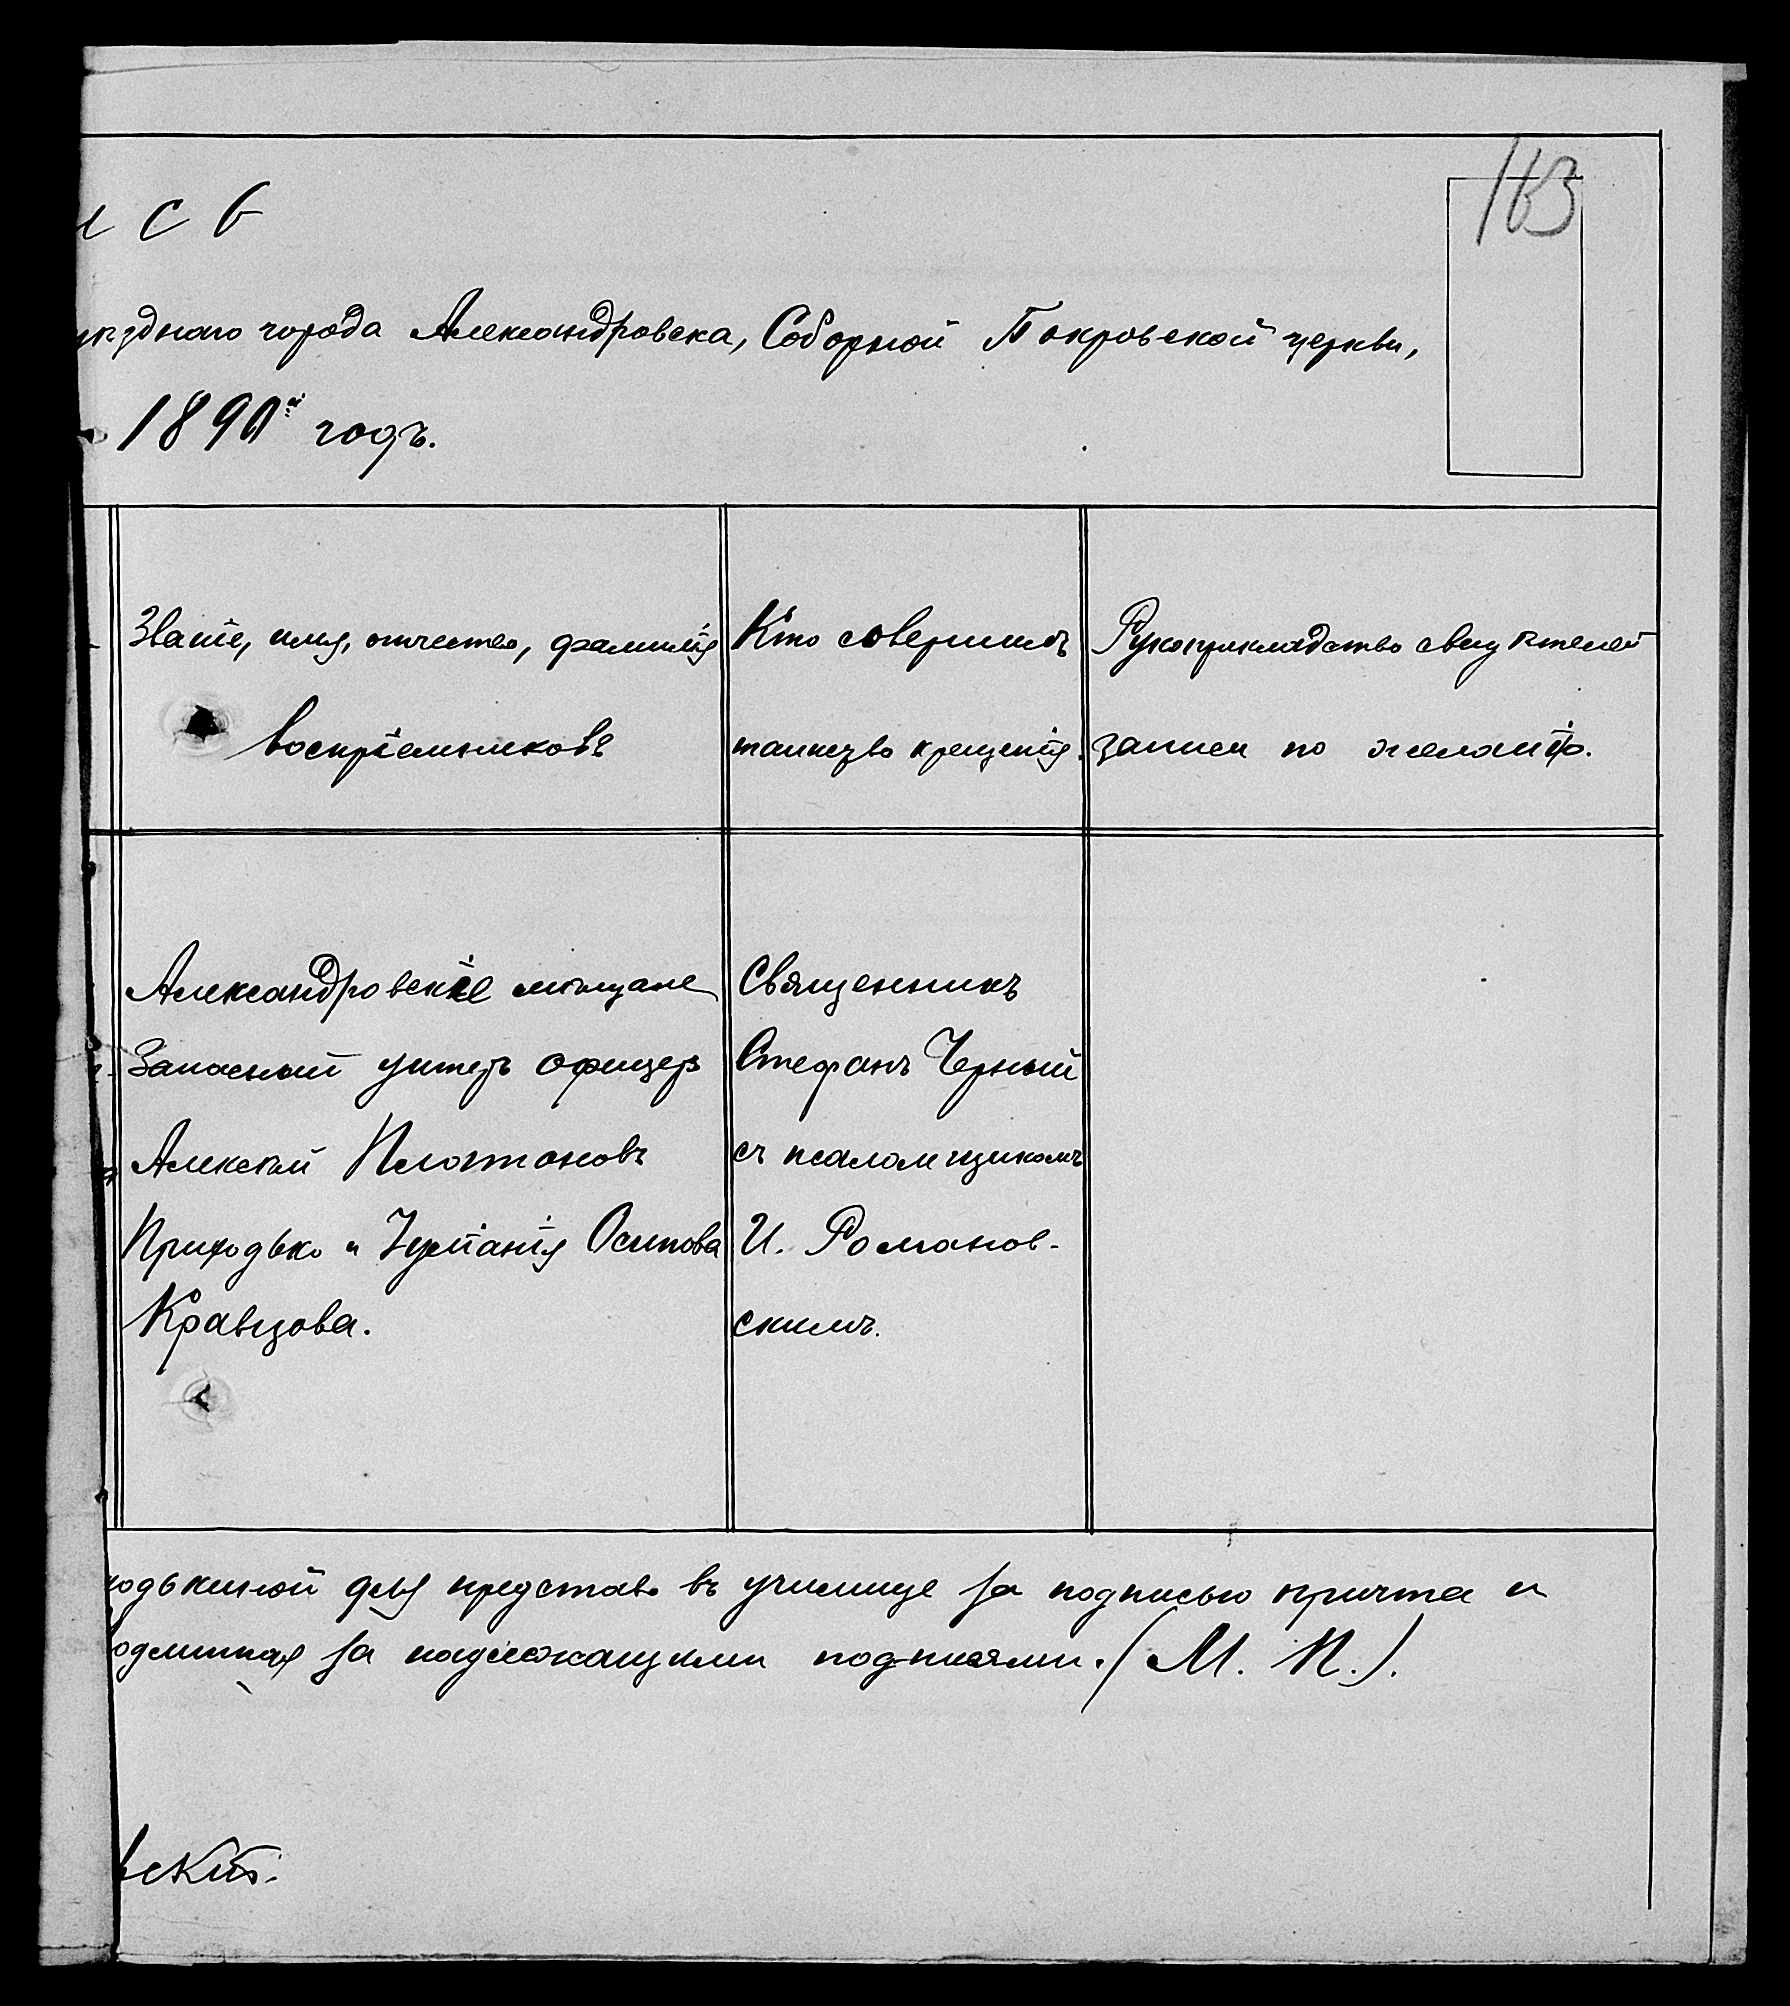 163
и с ь
уѣзднаго города Александровска, Соборной Покровской церкви,
1890й годъ.
Званіе, имя, отчество, фамилія
воспріемниковъ
Кто совершилъ
таинство крещенія.
Рукоприкладство свидѣтелей
записи по желанію.
Александровскіе мѣщане
Запасный унтеръ офицеръ
Алексѣй Платоновъ
Приходько и Осипова
Кравцова.
Священникъ
Стефанъ Черный
съ псаломщикомъ
И. Романов-
скимъ.
одькиной для представ. въ училище за подписью причта и
одлинная за надлежащими подписями. (М. П.).
вскій.